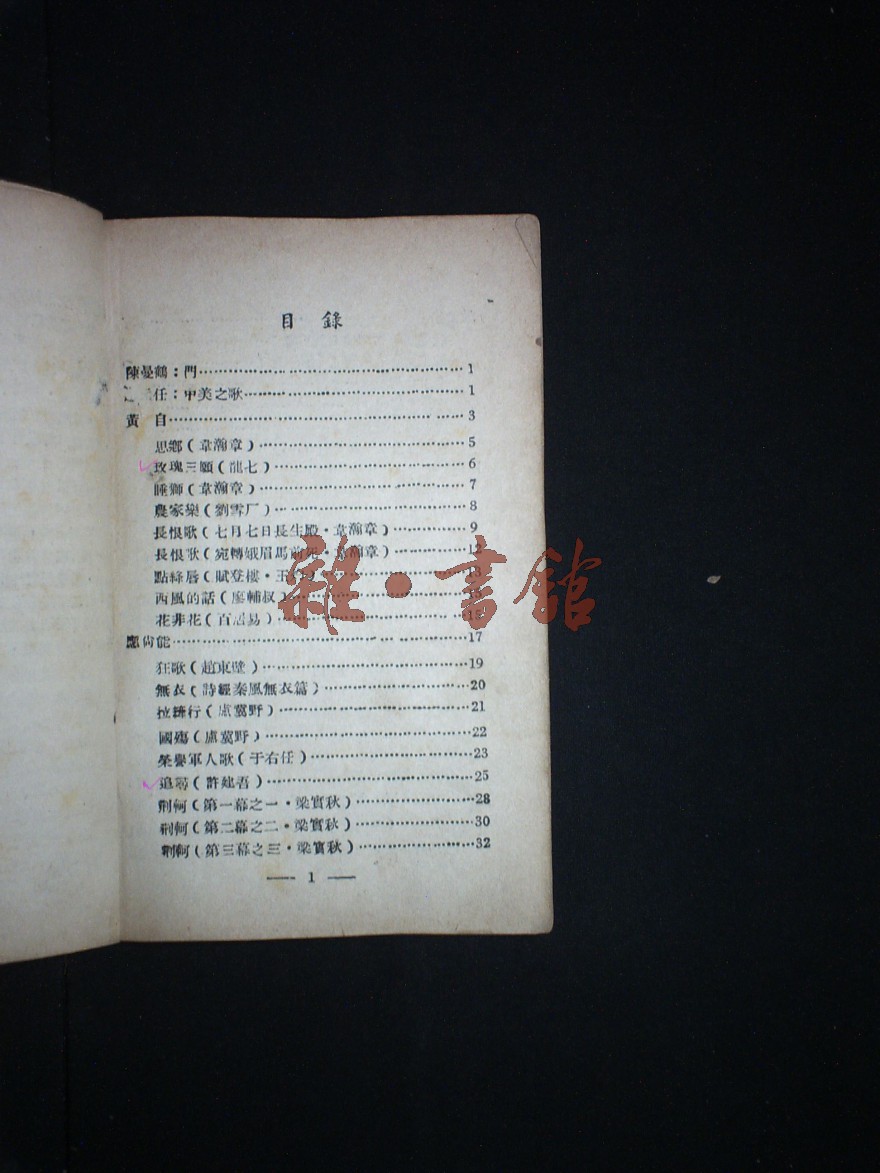 目 錄
陳曼鶴：門 1
任：中美之歌 1
黃 自 3
思鄉（韋瀚章） 5
玫瑰三願（龍七） 6
睡獅（韋瀚章） 7
農家樂（劉雪厂） 8
長恨歌（七月七日長生殿・韋瀚章） 9
長恨歌（宛轉娥眉馬前死・韋瀚章） 12
點絳唇（賦登樓・王 13
西風的話（廖輔叔）
花非花（百居易）
應尚能 17
狂歌（趙東壁） 19
無衣（詩經秦風無衣篇） 20
拉縴行（盧冀野） 21
國殤（盧冀野） 22
榮譽軍人歌（于右任） 23
追尋（許建吾） 25
荆軻（第一幕之一・梁實秋） 28
荆軻（第二幕之二・梁實秋） 30
荆軻（第三幕之三・梁實秋） 32
— 1 —
雜・書館